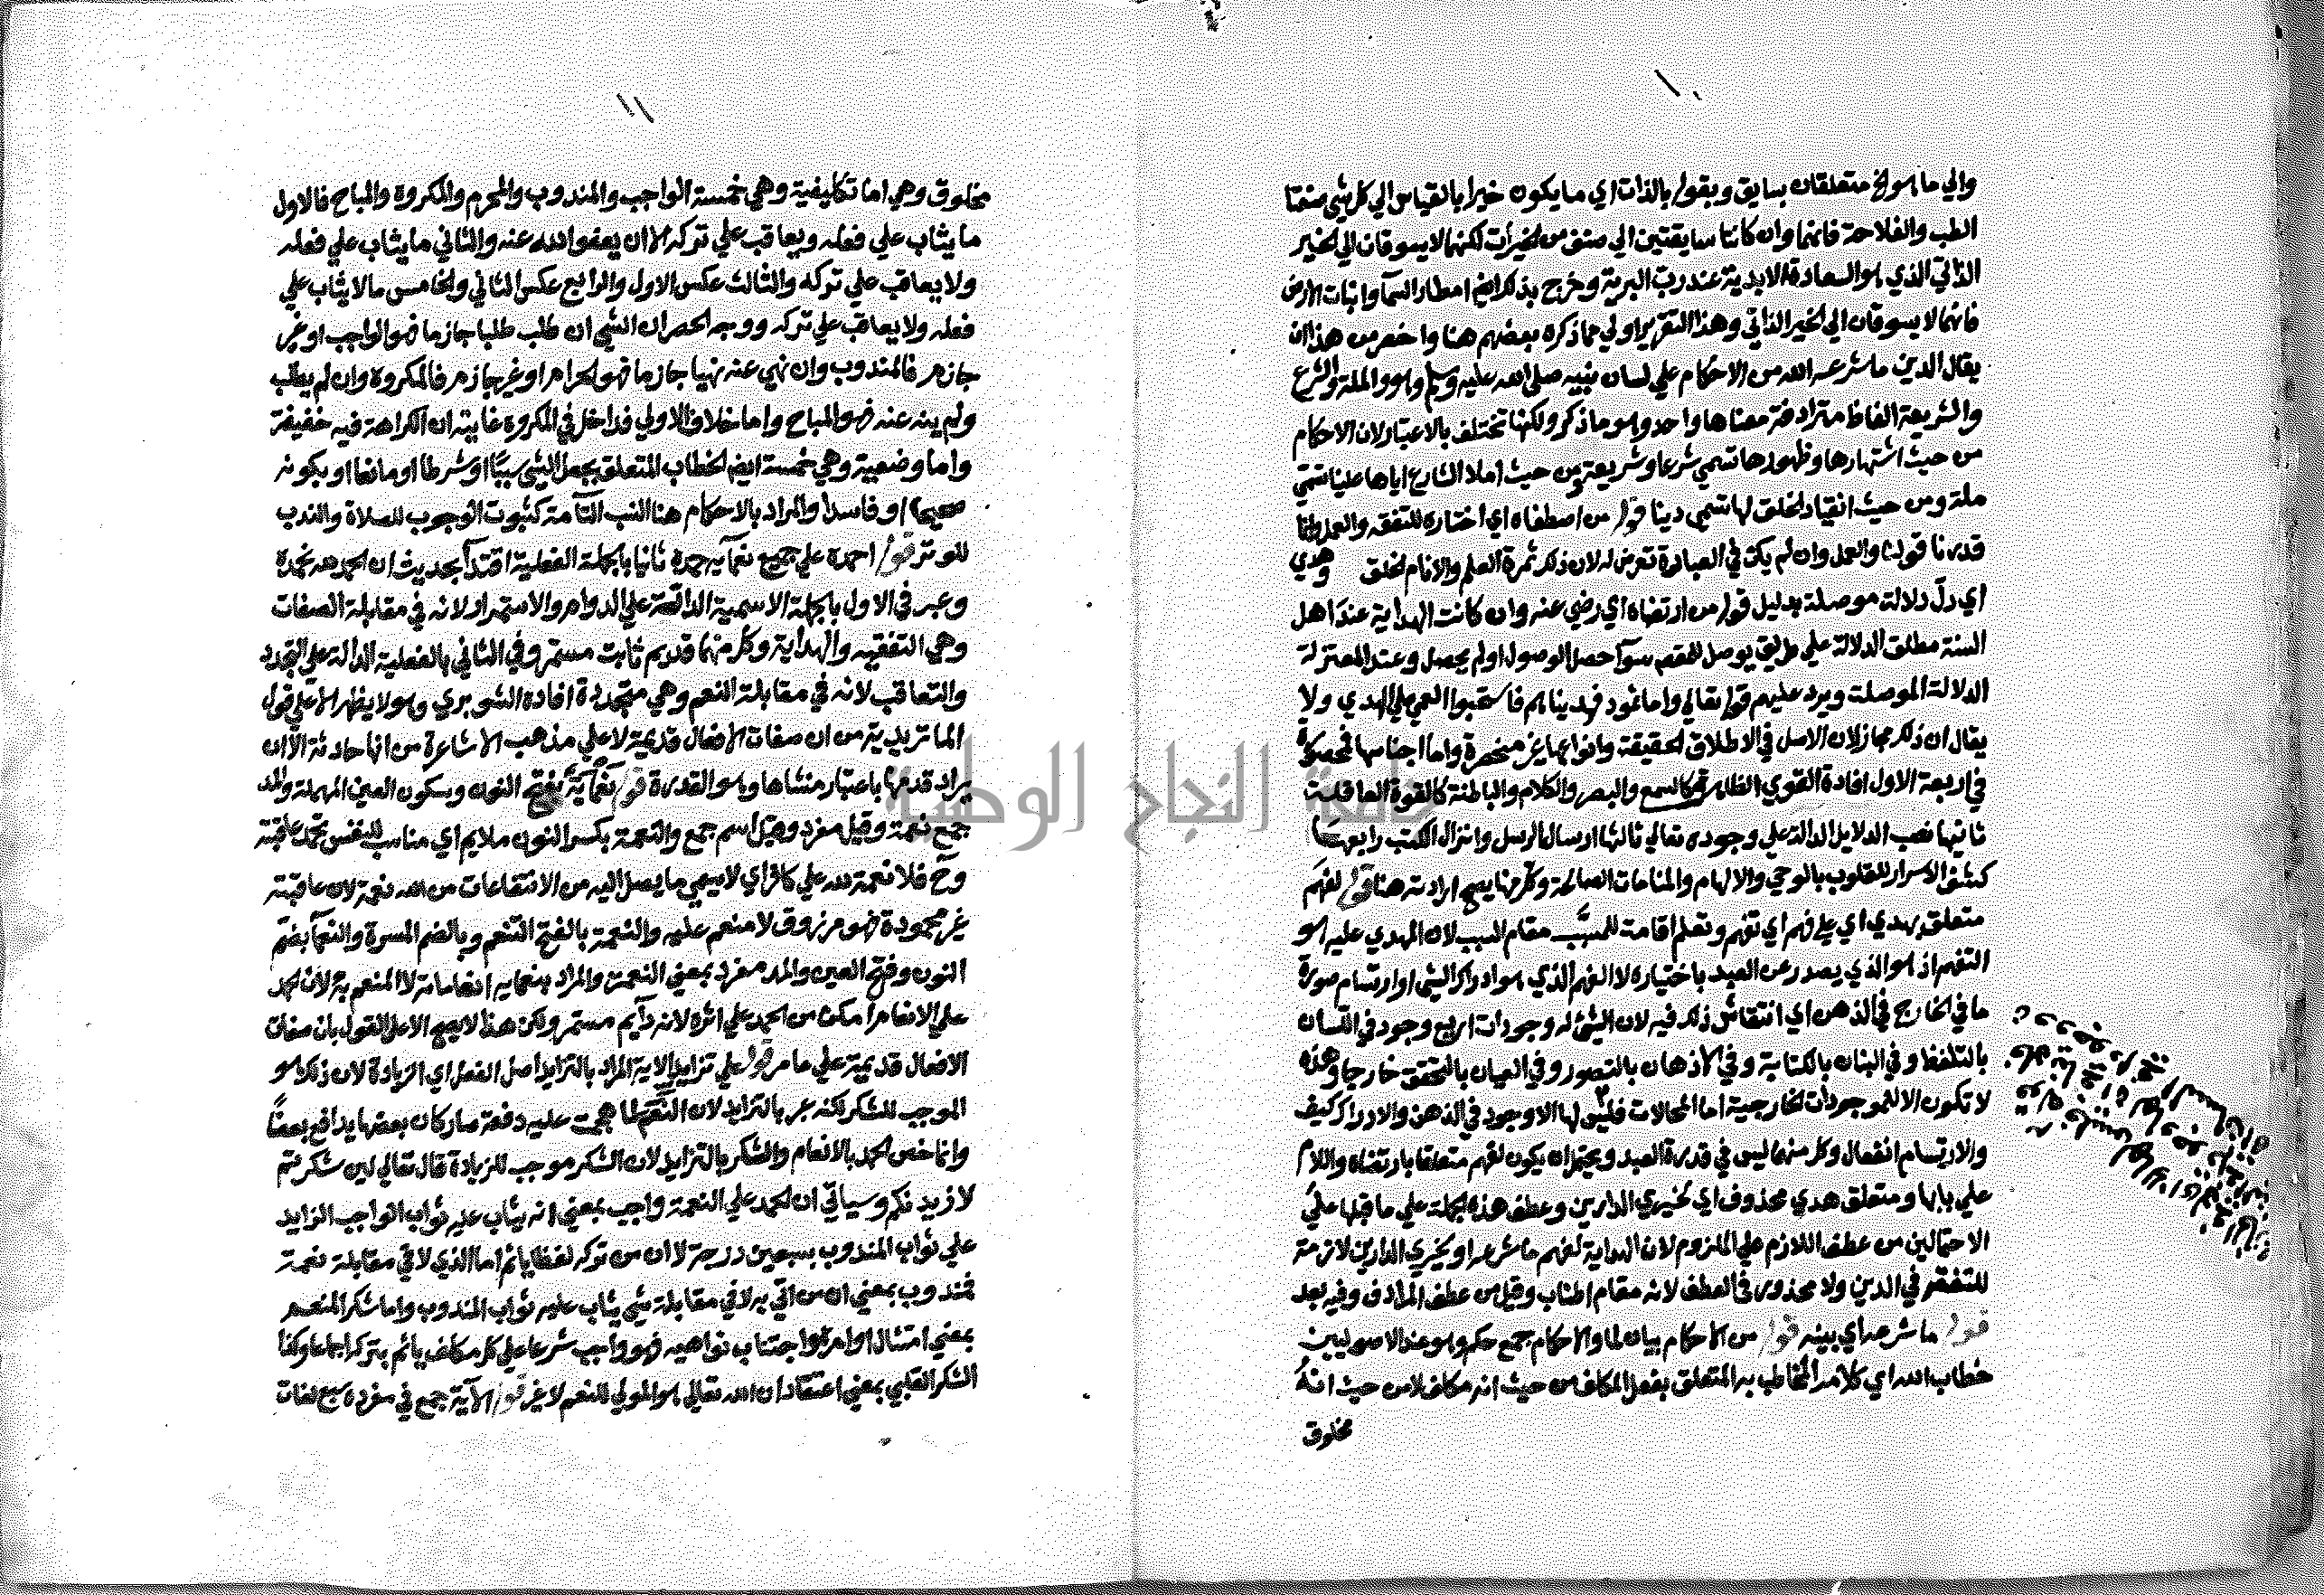 ١٠
والي ما هو الخ متعلقان بسايق وبقوله بالذات اي ما يكون خيرا بالقياس الي كل شي
الطب والفلاحة فانهما وان كانتا سايقتين الي صنف من الخيرات لكنهما لا يسوقان الي الخير
الذاتي الذي هو السعادة الابدية عند رب البرية وخرج بذلك ايضا امطار السما وانبات الارض
فانهما لا يسوقان الي الخير الذاتي وهذا التقرير اولي مما ذكره بعضهم هنا واخصر من هذا ان
يقال الدين ما شرعه الله من الاحكام علي لسان نبيه صلى الله عليه وسلم وهو والملة والشرع
والشريعة الفاظ مترادفة معناها واحد وهو ما ذكر ولكنها تختلف بالاعتبار لان الاحكام
من حيث اشتهارها وظهورها تسمي شرعا وشريعة ومن حيث املا الشارع اياها علينا تسمي
ملة ومن حيث انقياد الخلق لها تسمى دينا قوله من اصطفاه اي اختاره للتفقه والعمل وانما
قدرنا قولنا والعمل وان لم يكن في العبارة تعرض له لان ذلك ثمرة العلم والانام الخلق وهدي
اي دلّ دلالة موصلة بدليل قوله من ارتضاه اي رضي عنه وان كانت الهداية عند اهل
السنة مطلق الدلالة علي طريق يوصل للمقصد سوآ حصل الوصول اولم يحصل وعند المعتزلة
الدلالة الموصلة ويرد عليهم قوله تعالي واما ثمود فهديناهم فاستحبوا العمي علي الهدي ولا
يقال ان ذلك مجاز لان الاصل في الاطلاق الحقيقة وانواعها غير منحصرة واما اجناسها فمحصورة
في اربعة الاول افادة القوي الظاهرة كالسمع والبصر والكلام والباطنة كالقوة العاقلة
ثانيها نصب الدلايل الدالة علي وجوده تعالي ثالثها ارسال الرسل وانزال الكتب رابعها
كشف الاسرار للقلوب بالوحي والالهام والمنامات الصالحة وكل منها يصح ارادته هنا قوله لفهم
متعلق بهدي اي علي فهم اي تفهم وتعلم اقامة للمسبَّب مقام السبب لان المهدي عليه هو
التفهم اذ هو الذي يصدر عن العبد باختياره لا الفهم الذي هو ادراك الشي او ارتسام صورة
ما في الخارج في الذهن اي انتقاش ذلك فيه لان الشئ له وجودات اربع وجود في اللسان
بالتلفظ وفي البنان بالكتابة وفي الاذهان بالتصور وفي العيان بالتحقق خارجا وهذه
لا تكون الا للموجودات الخارجية اما المحالات فليس لها الا وجود في الذهن والادراك كيف
والارتسام انفعال وكل منهما ليس في قدرة العبد ويحتمل ان يكون لفهم متعلقا بارتضاه واللام
علي بابها ومتعلق هدي محذوف اي لخيري الدارين وعطف هذه الجملة علي ما قبلها علي
الاحتمالين من عطف اللازم علي الملزوم لان الهداية لفهم ما شرعه او لخيري الدارين لازمة
للتفقه في الدين ولا محذور في العطف لانه مقام اطناب وقيل من عطف المرادف وفيه بعد
قوله ما شرعه اي بينه قوله من الاحكام بيان لما والاحكام جمع حكم وهو عند الاصوليين
خطاب الله اي كلامه المخاطب به المتعلق بفعل المكلف من حيث انه مكلف لا من حيث انهُ
مخلوق
١١
مخلوق وهي اما تكليفية وهي خمسة الواجب والمندوب والمحرم والمكروه والمباح فالاول
ما يثاب علي فعله ويعاقب علي تركه الا ان يعفوا الله عنه والثاني ما يثاب علي فعله
ولا يعاقب علي تركه والثالث عكس الاول والرابع عكس الثاني والخامس ما لا يثاب علي
فعله ولا يعاقب علي تركه ووجه الحصر ان الشي ان طلب طلبا جازما فهو الواجب او غير
جازم فالمندوب وان نهي عنه نهيا جازما فهو الحرام او غير جازم فالمكروه وان لم يطلب
ولم ينه عنه فهو المباح واما خلاف الاولي فداخل في المكروه غايته ان الكراهة فيه خفيفة
واما وضعية وهي خمسة ايضا الخطاب المتعلق بجعل الشي سببًا او شرطا او مانعا او بكونه
صحيحا او فاسدا والمراد بالاحكام هنا النسب التآمة كثبوت الوجوب للصلاة والندب
للوتر قوله احمده علي جميع نعمآيه حمده ثانيا بالجملة الفعلية اقتدآ بحديث ان الحمد لله نحمده
وعبر في الاول بالجملة الاسمية الدالة علي الدوام والاستمرار لانه في مقابلة الصفات
وهي التفقيه والهداية وكل منهما قديم ثابت مستمر وفي الثاني بالفعلية الدالة علي التجدد
والتعاقب لانه في مقابلة النعم وهي متجددة افادة الشوبري وهو لا يظهر الا علي قول
الماتريدية من ان صفات الافعال قديمة لا علي مذهب الاشاعرة من انها حادثة الا ان
يراد قدمها باعتبار منشاها وهو القدرة قوله نعمآيه بفتح النون وسكون العين المهملة والمد
جمع نعمة وقيل مفرد وقيل اسم جمع والنعمة بكسر النون ملايم اي مناسب للنفس تحمد عاقبته
وح فلا نعمة لله علي كافر اي لا يسمي ما يصل اليه من الانتفاعات من الله نعمة لان عاقبته
غير محمودة فهو مرزوق لا منعم عليه والنعمة بالفتح التنعم وبالضم المسرة والنعمآ بضم
النون وفتح العين والمد مفرد بمعني النعمة والمراد بنعمايه انعاماته لا المنعم به لان الحمد
علي الانعام امكن من الحمد علي اثره لانه دآيم مستمر ولكن هذا لا يصح الا علي القول بان صفات
الافعال قديمة علي ما مر قوله علي تزايد الايه المراد بالتزايد اصل الفعل اي الزيادة لان ذلك هو
الموجب للشكر لكنه عبر بالتزايد لان النعم لما هجمت عليه دفعة صار كان بعضها يدافع بعضًا
وانما خص الحمد بالانعام والشكر بالتزايد لان الشكر موجب للزيادة قال تعالي لين شكرتم
لازيدنكم وسياتي ان الحمد علي النعمة واجب بمعني انه يثاب عليه ثواب الواجب الزايد
علي ثواب المندوب بسبعين درجة لا ان من تركه لفظا ياثم اما الذي لا في مقابلة نعمة
فمندوب بمعني ان من اتي به لا في مقابلة شي يثاب عليه ثواب المندوب واما شكر المنعم
بمعني امتثال اوامره واجتناب نواهيه فهو واجب شرعا علي كل مكلف ياثم بتركه اجماعا وكذا
الشكر القلبي بمعني اعتقاد ان الله تعالي هو المولي للنعم لا غير قوله الآية جمع في مفرده سبع لغات
جامعة النجاح الوطنية